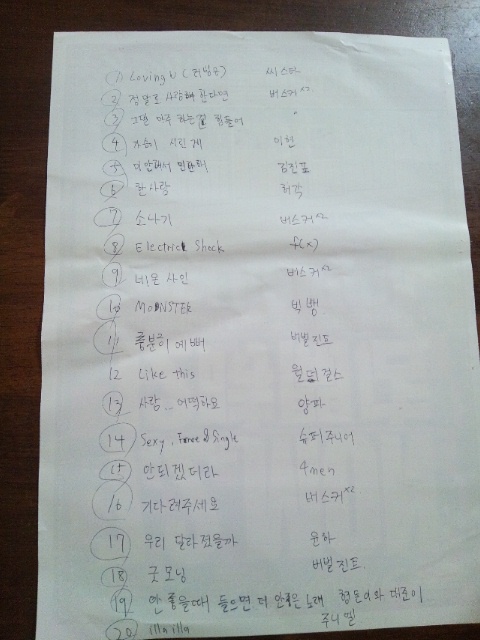 1 Loving U (러빙유) 씨스타
2 정말로 사랑한다면 버스커×2
3 그댈 마주하는건 힘들어 "
4 가슴이 시린게 이현
5 미안해서 미안해 김진표
6 한사람 허각
7 소나기 버스커×2
8 Electrick Shock f(x)
9 네온사인 버스커×2
10 MONSTER 빅뱅
11 충분히 예뻐 버벌진트
12 Like this 원더걸스
13 사랑... 어떡하요 양파
14 Sexy, Free & Single 슈퍼주니어
15 안되겠더라 4men
16 기다려주세요 버스커×2
17 우리 달라졌을까 윤하
18 굿모닝 버벌진트
19 안 좋을때 들으면 더 안좋은 노래 형돈이와 대준이
20 illa illa 주니엘